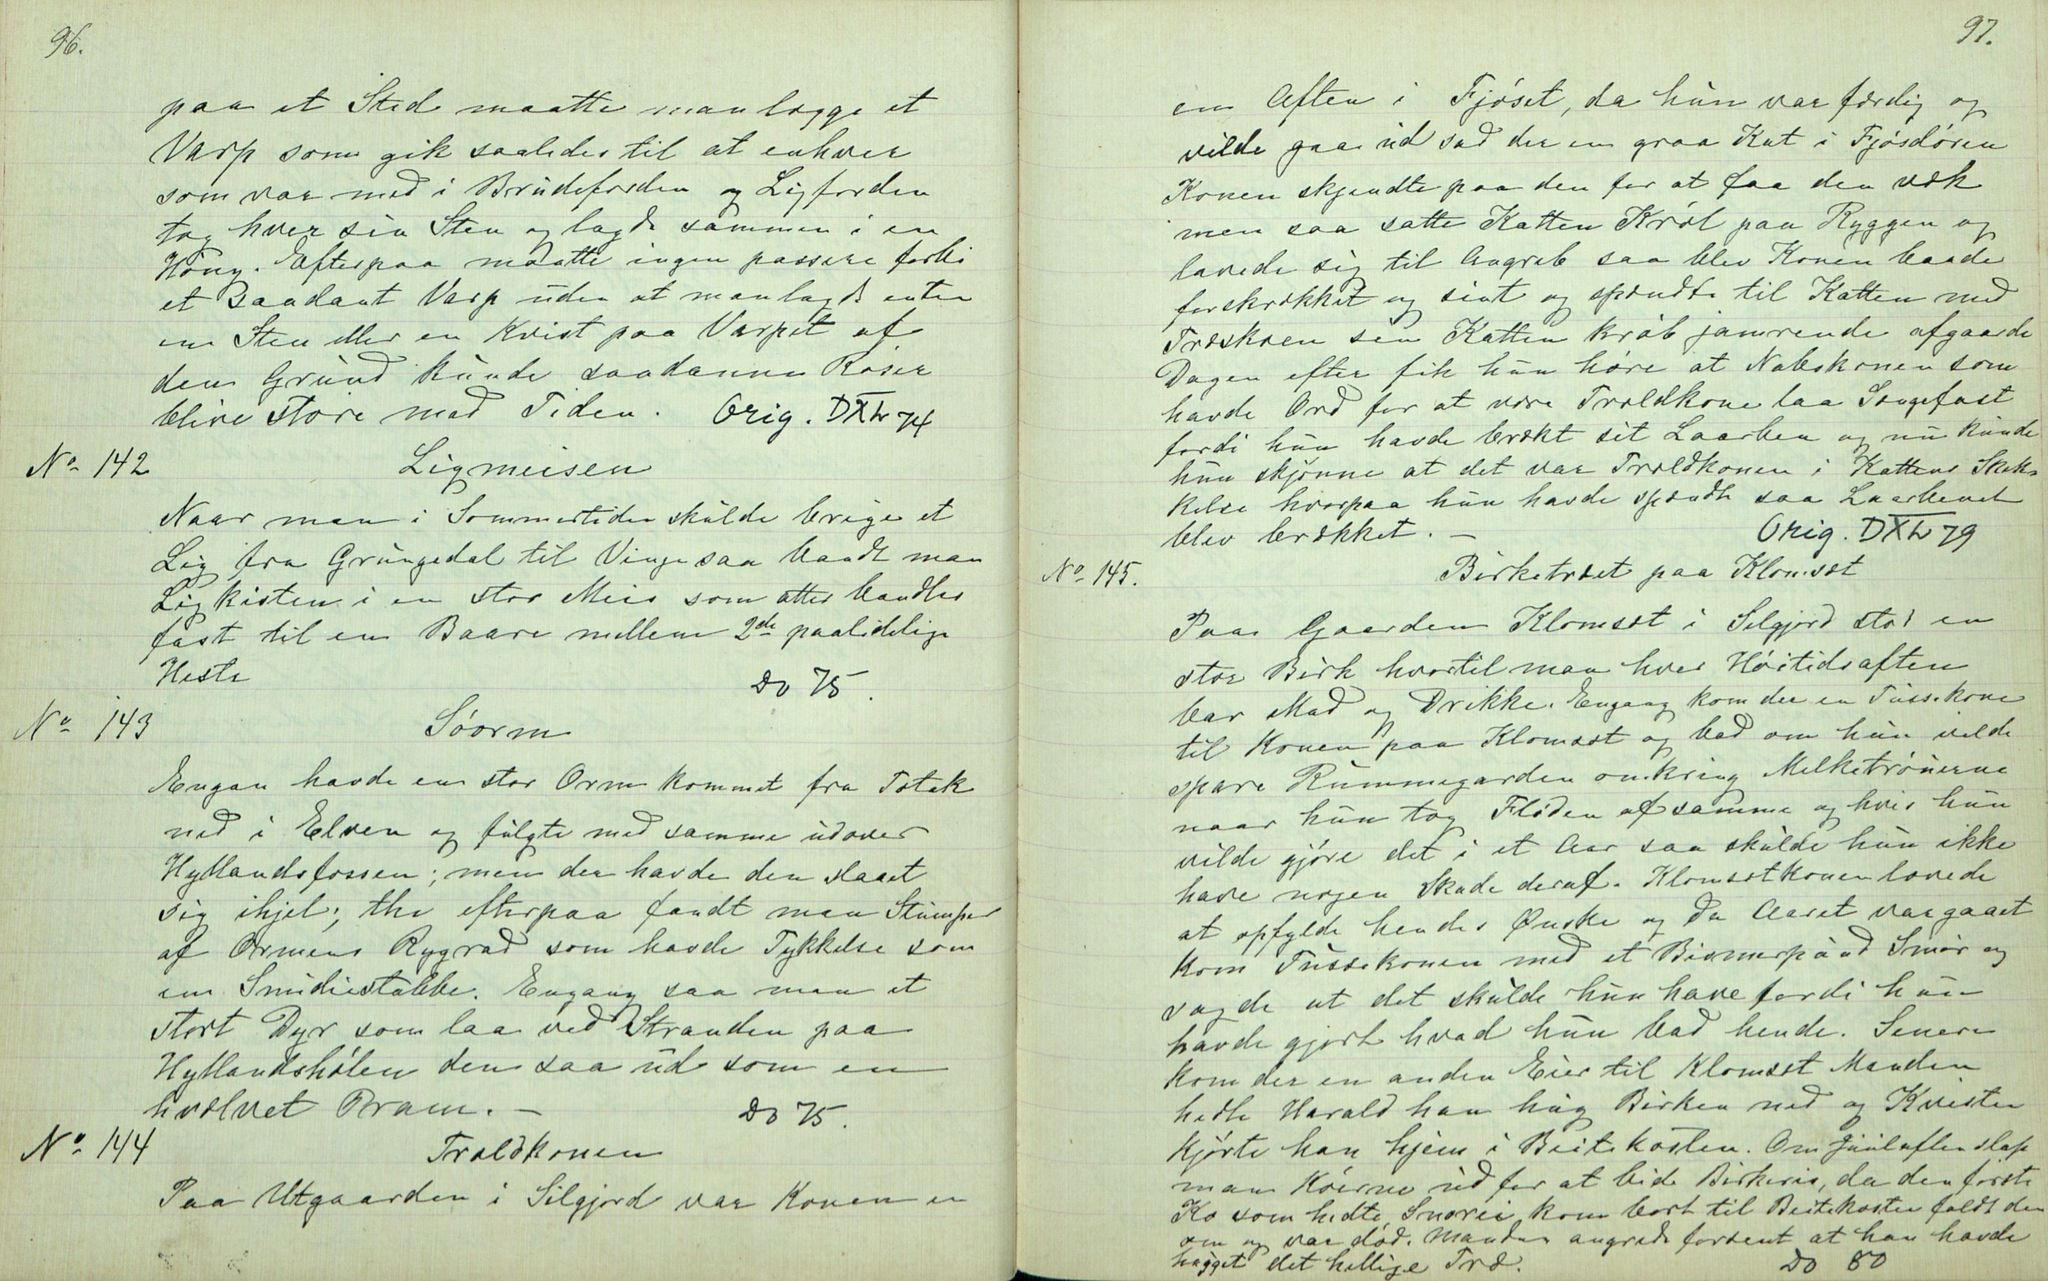 96.
paa et Sted maatte man lægge et
Varp som gik saaledes til at enhver
som var med i Brudeferden og Ligferden
tog hver sin Sten og lagde sammen i en
Houg. Efterpaa maatte ingen passere forbi
et saadant Varp uden at man lagde enten
en Sten eller en Kvist paa Varpet af
den Grund kunde saadanne Røser
blive store med Tiden. Orig. DXL 74
No 142 Ligmeisen
Naar man i Sommertiden skulde bringe et
Lig fra Grungedal til Vinje saa bandt man
Ligkisten i en stor Meis som atter bandtes
fast til en Baare mellem 2de paalidelige
Heste Do 75.
No 143 Söorm
Engan havde en stor Orm kommet fra Totak
ned i Elven og fulgte med samme udover
Hyllandsfossen; men der havde den slaaet
sig ihjel; thi efterpaa fandt man Stumper
af Ormens Rygrad som havde Tykkelse som
en Smidiestabbe. Engang saa man et
stort Dyr som laa ved Stranden paa
Hyllandshölen den saa ud som en
hvælvet Pram. — Do 75.
No 144 Troldkonen
Paa Utgaarden i Silgjord var Konen en
97.
en Aften i Fjöset, da hun var færdig og
vilde gaa ud sad der en graa Kat i Fjösdören
Konen skjendte paa den for at faa den væk
men saa satte Katten Kröl paa Ryggen og
lavede sig til Angreb saa blev Konen baade
forskrækket og sint og spændte til Katten med
Træskoen sin Katten krøb jamrende afgaarde
Dagen efter fik hun høre at Nabokonen som
havde Ord for at være Troldkone laa Sengefast
fordi hun havde brækt sit Laarben og nu kunde
hun skjønne at det var Troldkonen i Kattens Skik-
kelse hvorpaa hun havde spændt saa Laarbenet
blev brækket. — Orig. DXL 79
No 145. Birketræet paa Klomset
Paa Gaarden Klomset i Silgjord stod en
stor Birk hvortil man hver Höitidsaften
bar Mad og Drikke. Engang kom der en Tussekone
til Konen paa Klomset og bad om hun vilde
spare Rummegarden omkring Melketröuerne
naar hun tog Flöden af samme og hvis hun
vilde gjöre det i et Aar saa skulde hun ikke
have nogen Skade deraf. Klomsetkonen lovede
at opfylde hendes Ønske og da Aaret var gaaet
kom Tussekonen med et Bismerpund Smör og
sagde at det skulde hun have fordi hun
havde gjort hvad hun bad hende. Senere
kom der en anden Eier til Klomset Manden
hedte Harald han hug Birken ned og Kvisten
kjörte han hjem i Beitekosten. Om Juulaften slap
man Köerne ud for at bide Birkeris, da den förste
Ko som hedte Snorei kom bort til Beitekosten faldt den
om og var död. Manden angrede forsent at han havde
hugget det hellige Træ. Do 80